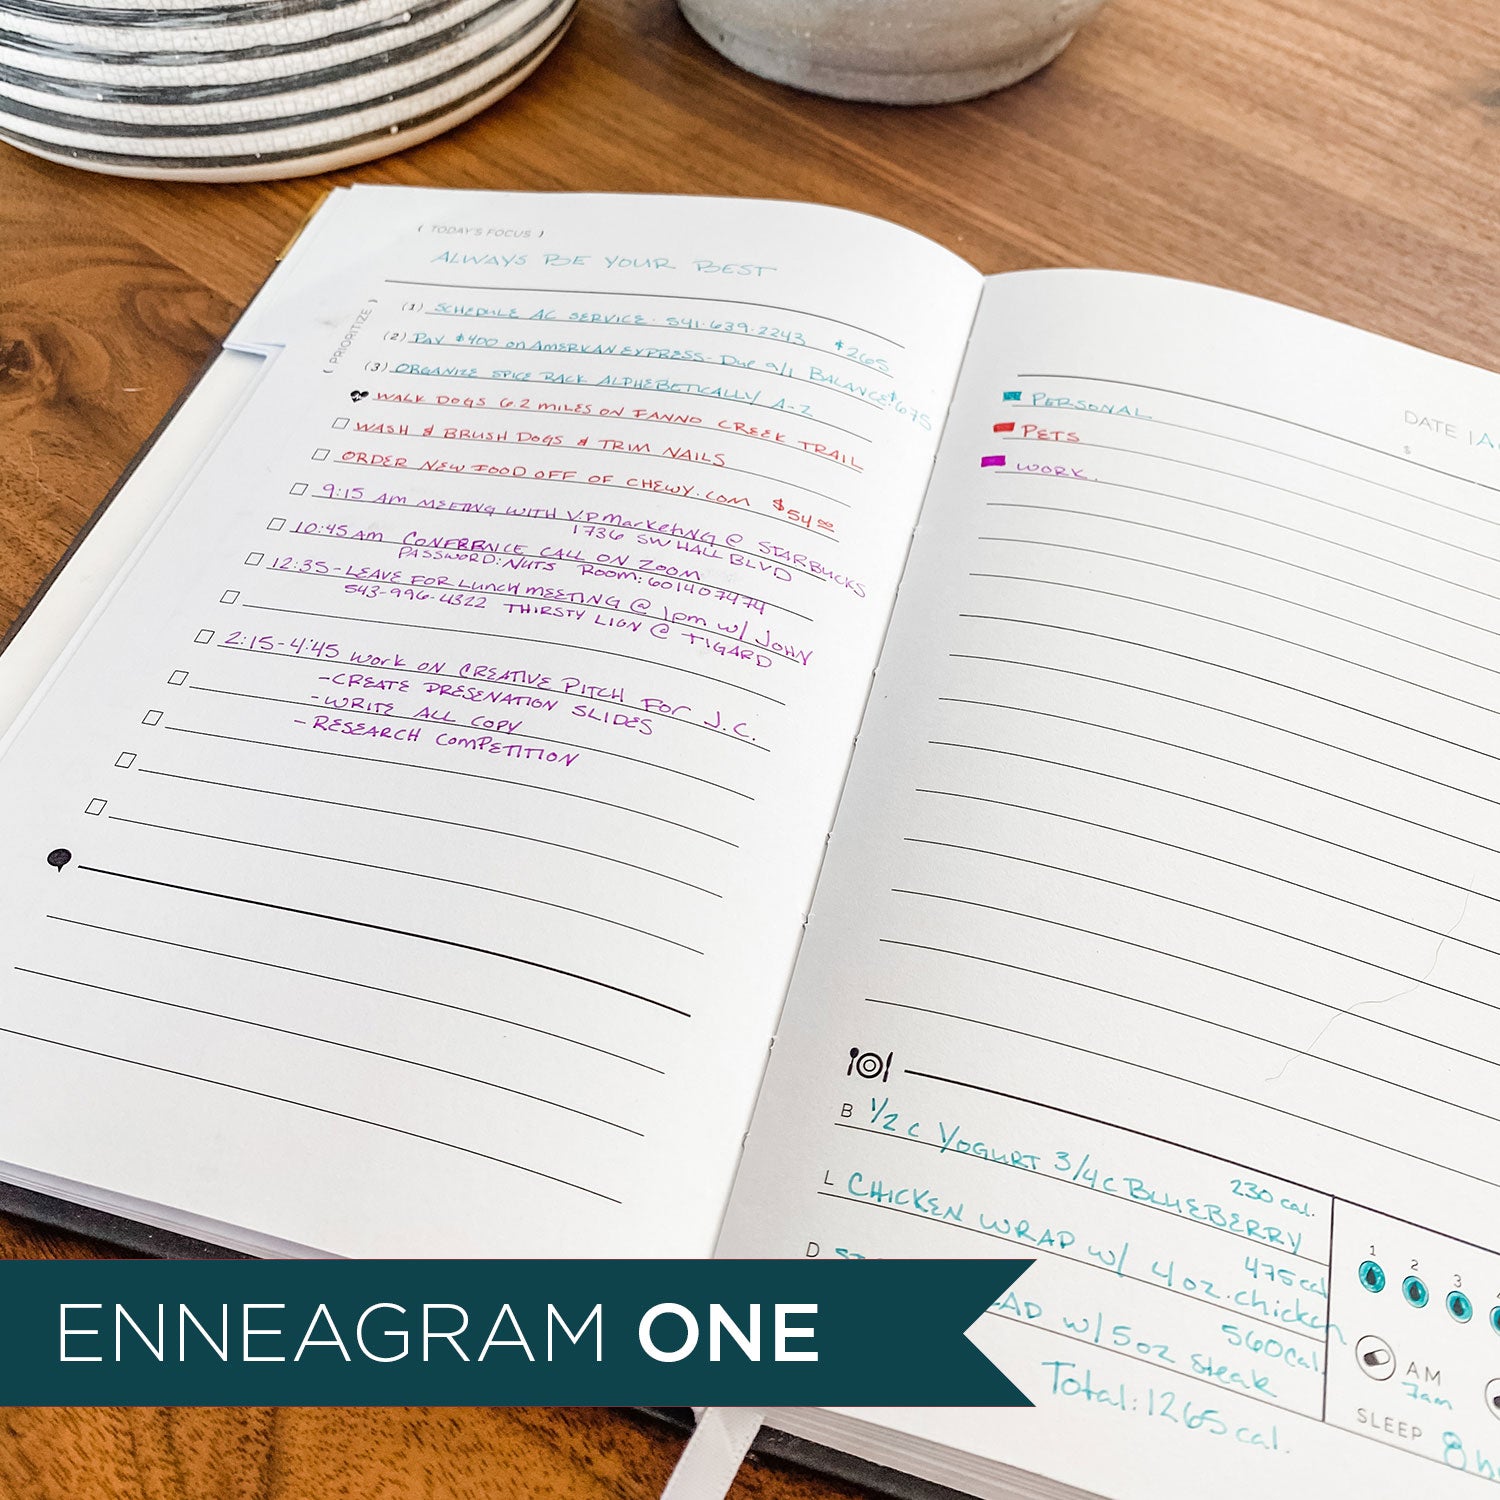 ( TODAY'S FOCUS )
ALWAYS BE YOUR BEST
( PRIORITIZE )
(1) SCHEDULE AC SERVICE · 541·639·2243 $265
(2) PAY $400 on AMERICAN EXPRESS - Due 9/1 BALANCE: $675
(3) ORGANIZE SPICE RACK ALPHEBETICALLY A-Z
WALK DOGS 6.2 MILES ON FANNO CREEK TRAIL
WASH & BRUSH DOGS & TRIM NAILS
ORDER NEW FOOD OFF OF CHEWY.COM $54.00
9:15 AM MEETING WITH V.P Marketing @ STARBUCKS
1736 SW HALL BLVD
10:45 AM CONFERENCE CALL ON ZOOM
PASSWORD: NUTS ROOM: 6014037474
12:35 - LEAVE FOR LUNCH MEETING @ 1pm w/ JOHN
543-996-4322 THIRSTY LION @ TIGARD
2:15-4:45 WORK ON CREATIVE PITCH FOR J.C.
-CREATE PRESENATION SLIDES
-WRITE ALL COPY
- RESEARCH COMPETITION
DATE
PERSONAL
PETS
WORK.
B 1/2 C YOGURT 3/4 C BLUEBERRY 230 cal.
L CHICKEN WRAP w/ 4 oz. chicken 475 cal
D
w/ 5 oz steak 560 cal.
Total: 1265 cal.
1 2 3
AM
7am
SLEEP 8
ENNEAGRAM ONE